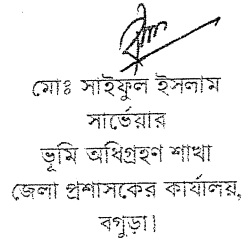 মোঃ সাইফুল ইসলাম
সার্ভেয়ার
ভূমি অধিগ্রহণ শাখা
জেলা প্রশাসকের কার্যালয়,
বগুড়া।